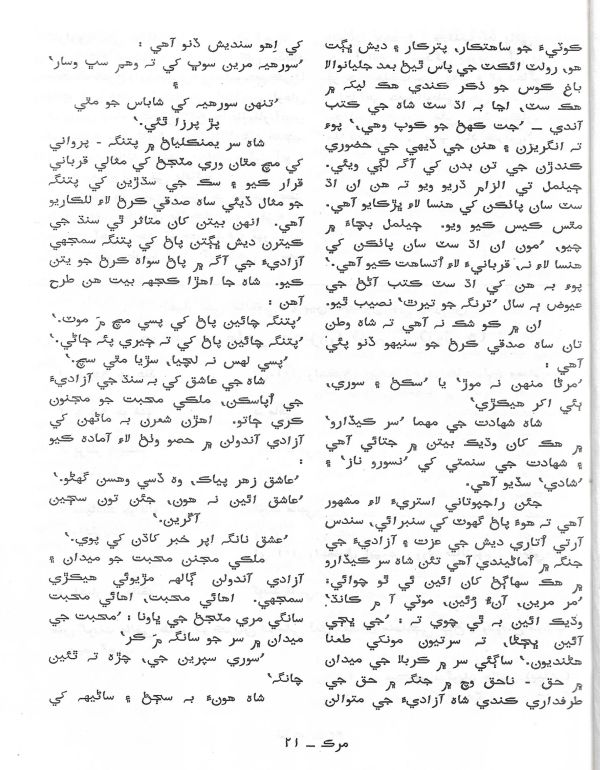 ڪوٽيءَ جو ساهتڪار، پترڪار ۽ ديش ڀڳت
هو، رولٽ ائڪٽ جي پاس ٿيڻ بعد جليانوالا
باغ ڪوس جو ذڪر ڪندي هڪ ليکہ ۾
هڪ سٽ، اڃا بہ اڌ سٽ شاہ جي ڪتب
آندي ــ ’جت ڪهڻ جو ڪوپ وهي،‘ پوءِ
تہ انگريزن ۽ هنن جي ڏيهي جي حضوري
ڪندڙن جي تن بدن کي آگہ لڳي ويئي.
جيٺمل تي الزام ڌريو ويو تہ هن ان اڌ
سٽ سان پاٺڪن کي هنسا لاءِ ڀڙڪايو آهي.
مٿس ڪيس ڪيو ويو. جيٺمل بچاءَ ۾
چيو، ’مون ان اڌ سٽ سان پاٺڪن کي
هنسا لاءِ نہ، قربانيءَ لاءِ اُتساهت ڪيو آهي.‘
پوءِ بہ هن کي اڌ سٽ ڪتب آڻڻ جي
عيوض ٻہ سال ’ترنگہ جو تيرٿ‘ نصيب ٿيو.
ان ۾ ڪو شڪ نہ آهي تہ شاہ وطن
تان ساہ صدقي ڪرڻ جو سنيهو ڏنو پئي
آهي :
’مرڻا منهن نہ موڙ‘ يا ’سڪڻ ۽ سوري،
ٻئي اکر هيڪڙي‘
شاہ شهادت جي مهما ’سر ڪيڏارو‘
۾ هڪ کان وڌيڪ بيتن ۾ جتائي آهي
۽ شهادت جي سنمتي کي ’نسورو ناز‘ ۽
’شادي‘ سڏيو آهي.
جئن راجپوتاني استريءَ لاءِ مشهور
آهي تہ هوءَ پاڻ گهوٽ کي سنبرائي، سندس
آرتي اُتاري ديش جي عزت ۽ آزاديءَ جي
جنگہ ۾ اُماڻيندي آهي تئن شاہ سر ڪيڏارو
۾ هڪ سهاڳڻ کان ائين ئي ٿو چوائي:
’مر مرين، آنءُ رُئين، موٽي آ م ڪانڌ.‘
وڌيڪ ائين بہ ٿي چوي تہ : ’جي ڀڄي
آئين ڀڄڻا، تہ سرتيون مونکي طعنا
هڻنديون.‘ ساڳئي سر ۾ ڪربلا جي ميدان
۾ حق - ناحق وچ ۾ جنگہ ۾ حق جي
طرفداري ڪندي شاہ آزاديءَ جي متوالن
کي اِهو سنديش ڏنو آهي :
’سورهيہ مرين سوڀ کي تہ وهم سڀ وسار‘
۽
’تنهن سورهيہ کي شاباس جو مٿي
پڙ پرزا ٿئي.‘
شاہ سر يمنڪلياڻ ۾ پتنگہ - پرواني
کي مچ مٿان وري مٽجڻ کي مثالي قرباني
قرار ڪيو ۽ سڪ جي سڏڙين کي پتنگہ
جو مثال ڏيئي ساہ صدقي ڪرڻ لاءِ للڪاريو
آهي. انهن بيتن کان متاثر ٿي سنڌ جي
ڪيترن ديش ڀڳتن پاڻ کي پتنگہ سمجهي
آزاديءَ جي آگہ ۾ پاڻ سواہ ڪرڻ جو يتن
ڪيو. شاہ جا اهڙا ڪجهہ بيت هن طرح
آهن :
’پتنگہ چائين پاڻ کي پسي مچ مَ موٽ.‘
’پتنگہ چائين پاڻ کي تہ چيري پئہ چاڻي.‘
’پسي لهس نہ لچيا، سڙيا مٿي سچ.‘
شاہ جي عاشق کي بہ سنڌ جي آزاديءَ
جي اُپاسڪن، ملڪي محبت جو مجنون
ڪري ڄاتو. اهڙن شعرن بہ ماڻهن کي
آزادي آندولن ۾ حصو وٺڻ لاءِ آمادہ ڪيو
:
’عاشق زهر پياڪ، وہ ڏسي وهسن گهڻو.‘
’عاشق ائين نہ هون، جئن تون سڃين
آڱرين.‘
’عشق نانگہ اپر خبر کاڌن کي پوي.‘
ملڪي مڃنن محبت جو ميدان ۽
آزادي آندولن ڳالهہ مڙيوئي هيڪڙي
سمجهي. اهائي محبت، اهائي محبت
سانگي مري مٽجڻ جي ڀاونا : ’محبت جي
ميدان ۾ سر جو سانگہ مَ ڪر‘
’سوري سپرين جي، چڙہ تہ ٿئين
چانگہ‘
شاہ هونءَ بہ سڄڻ ۽ ساڻيهہ کي
مرڪ ــ ٢١